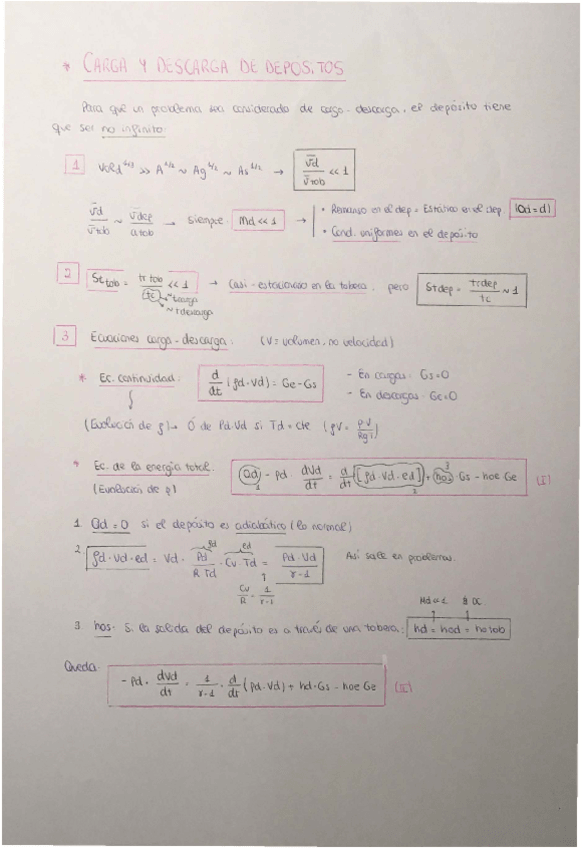 * CARGA Y DESCARGA DE DEPÓSITOS
Para que un problema sea considerado de carga-descarga, el depósito tiene
que ser no infinito:
1 Vold^2/3 >> A^1/2 ~ Ag^1/2 ~ As^1/2 → v̄d / v̄tob << 1
v̄d / v̄tob ~ v̄dep / atob → Siempre: Md << 1 → • Remanso en el dep = Estático en el dep. (0d = d)
• Cond. uniformes en el depósito
2 Sttob = tr tob / tc << 1 → Casi-estacionario en la tobera, pero Stdep = tr dep / tc ~ 1
~ tcarga
~ tdescarga
3 Ecuaciones carga-descarga: (V = volumen, no velocidad)
* Ec. continuidad: d/dt (ρd·Vd) = Ge - Gs - En cargas: Gs = 0
- En descargas: Ge = 0
(Evolución de ρ) → Ó de Pd·Vd si Td = cte (ρV = PV / RgT)
* Ec. de la energía total: Qd - Pd · dVd/dt = d/dt [ρd·Vd·ed] + hos·Gs - hoe Ge (I)
(Evolución de p) 1 2 3
1. Qd = 0 si el depósito es adiabático (lo normal)
2. ρd·Vd·ed = Vd · Pd / R Td · Cv Td = Pd·Vd / γ-1 Así sale en problemas.
ρd ed
Cv/R = 1/γ-1
Md<<1
3. hos - Si la salida del depósito es a través de una tobera: hd = hod = hotob
Queda: - Pd · dVd/dt = 1/γ-1 · d/dt (Pd·Vd) + hd·Gs - hoe Ge (II)